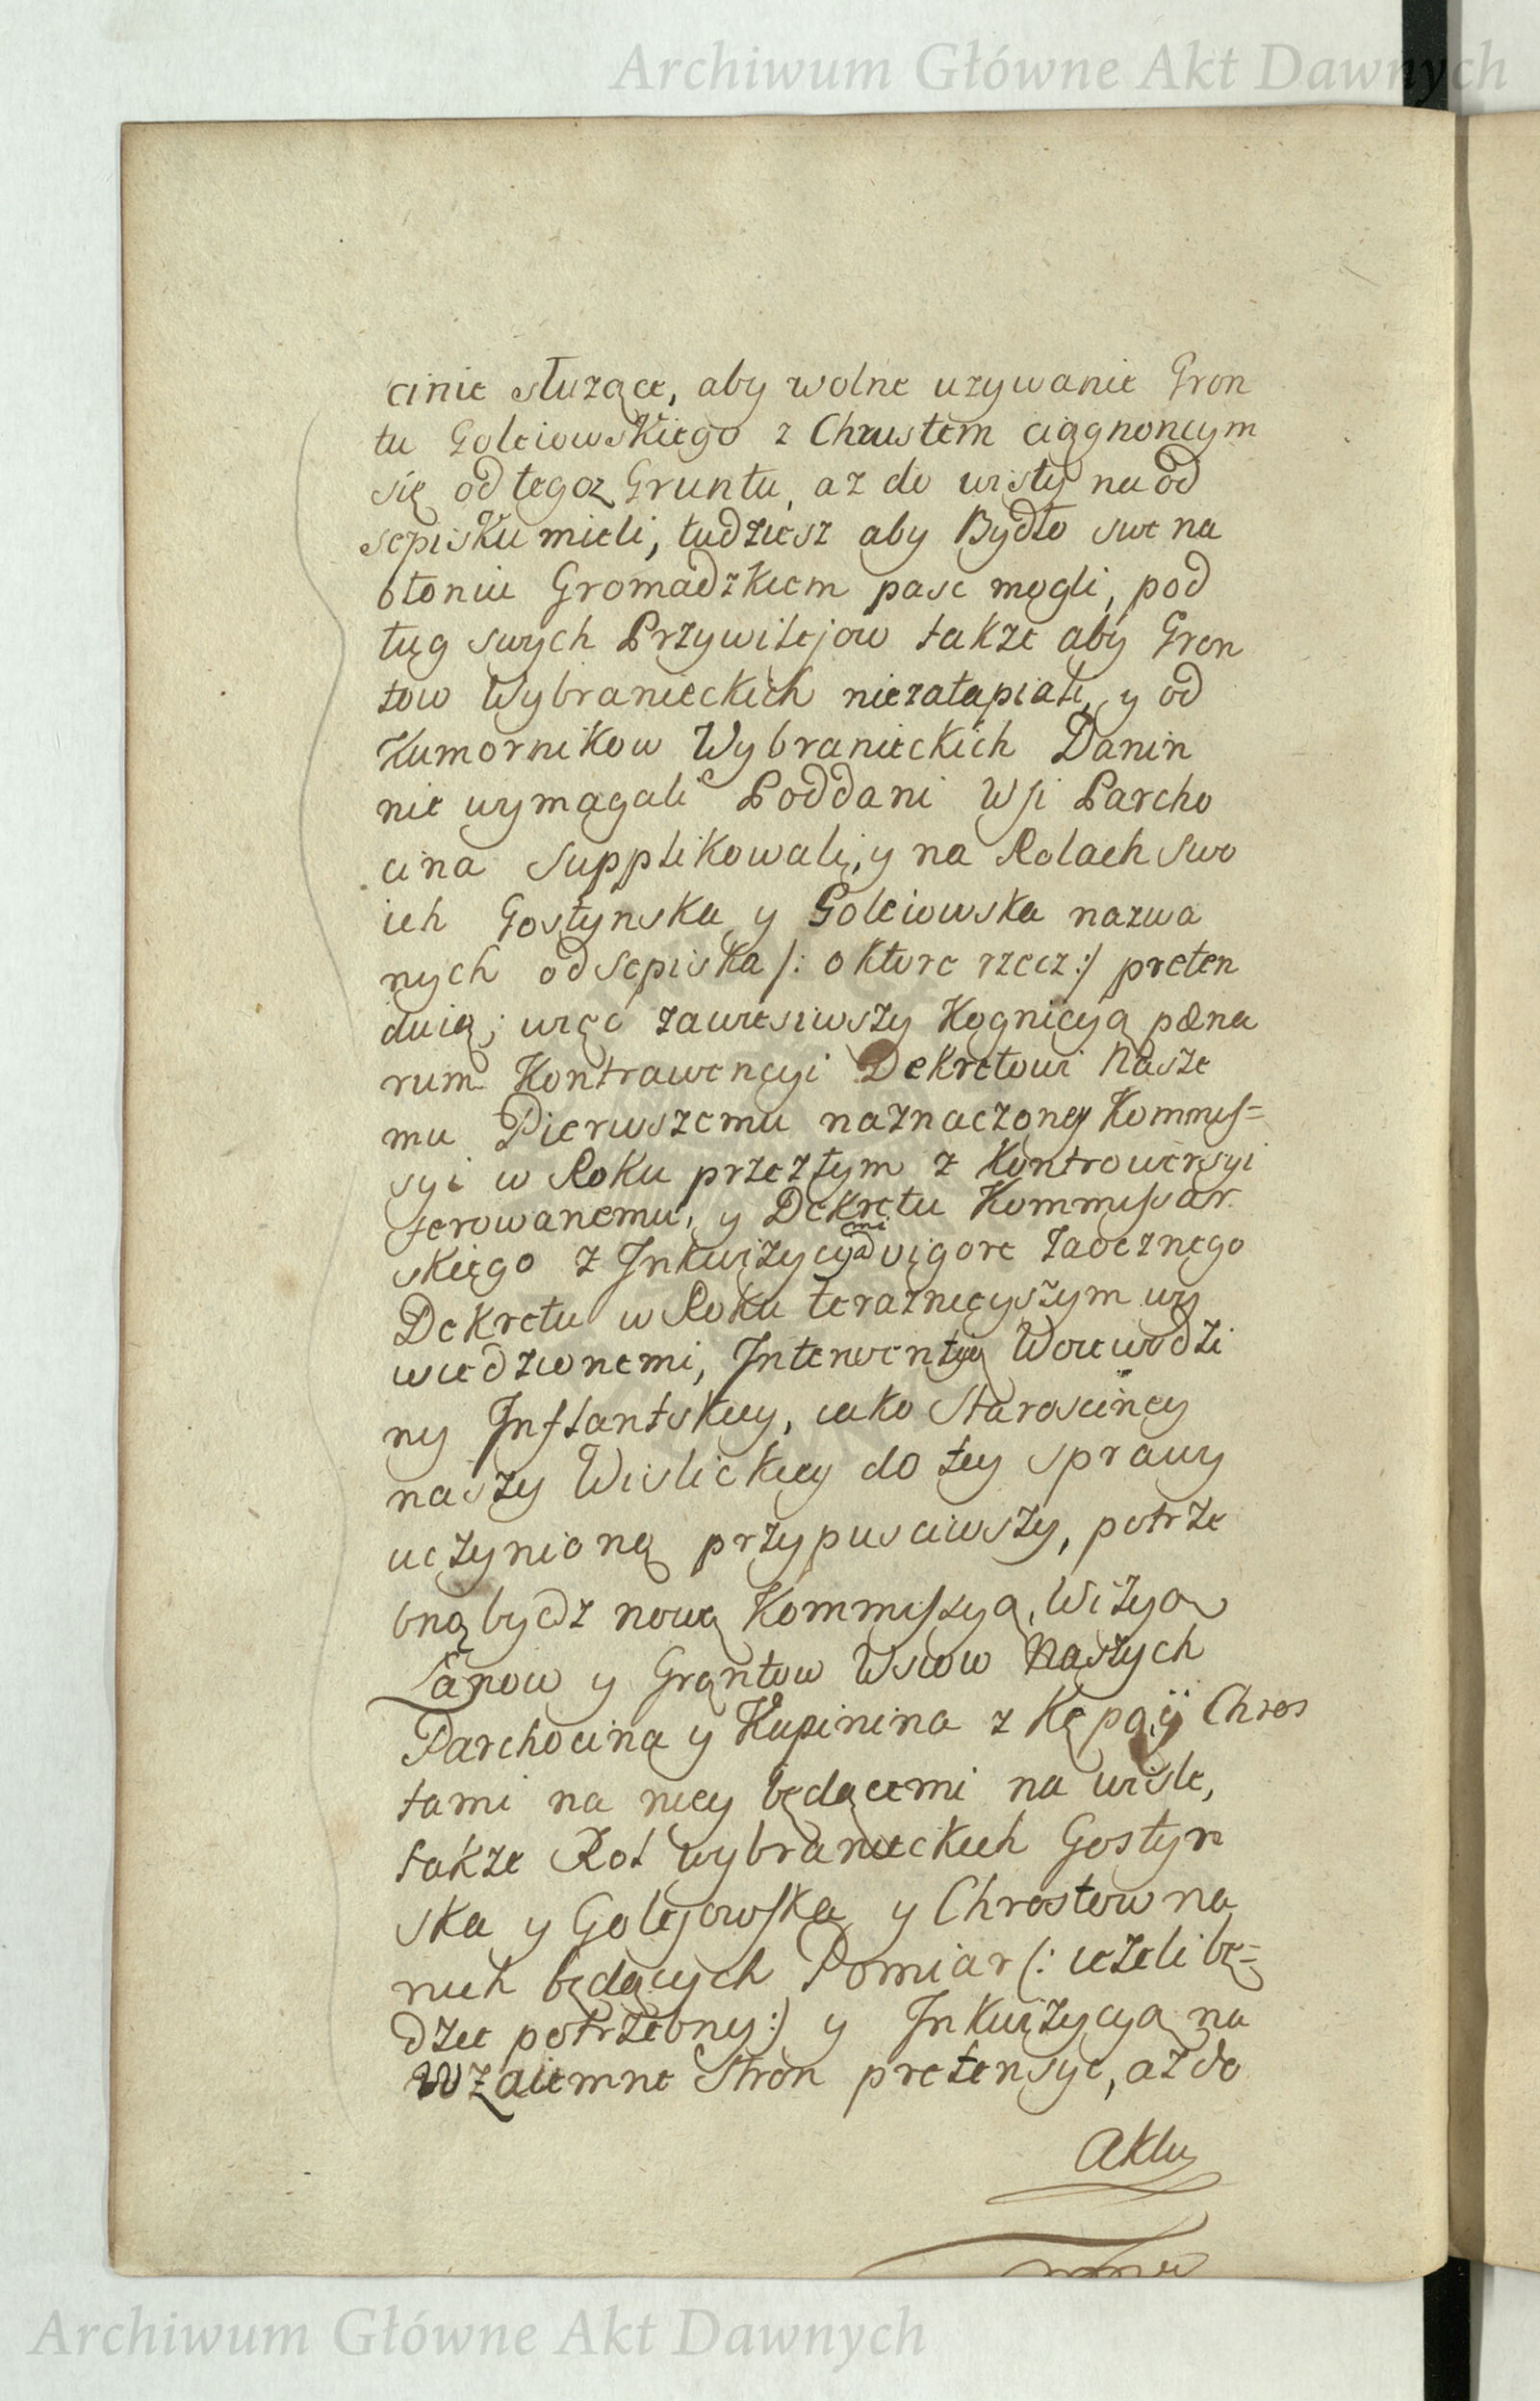 Archiwum Główne Akt Dawnych
cinie służące, aby wolne uzywanie Gron
tu Goleiowskiego z Chrustem ciągnoncym
się od tegoz Gruntu, az do wisły na od
sepisku mieli, tudziesz aby Bydło swe na
błoniu Gromadzkiem pasc mogli, pod
ług swych Przywilejow takze aby Gron
tow Wybranieckich niezatapiali, y od
Kumornikow Wybranieckich Danin
nie wymagali Poddani Wsi Parcho
cina Supplikowali, y na Rolach swo
ich Gostynska y Goleiowska nazwa
nych odsepiska /: o ktore rzecz :/ preten
duią; więc zawiesiwszy Kognicyą pœna
rum Kontrawencyi Dekretowi Nasze
mu Pierwszemu naznaczoney Kommis=
syi w Roku przeztym z Kontrowersyi
ferowanemu, y Dekretu Kommissar
skiego z Inkwizycyami vigore zaocznego
Dekretu w Roku teraznieyszym wy
wiedzionemi, Interwentyą Woiewodzi
ny Inflantskiey, iako Starosciney
naszy Wislickiey do tey sprawy
uczynioną przypusciwszy, potrze
bną bydz nową Kommissyą, Wizyą
Łanow y Grontow Wsiow Naszych
Parchocina y Kupinina z Kępą y Chros
tami na niey będącemi na wisle,
takze Rol wybranieckich Gostyn
ska y Golejowska y Chrostow na
nich będących Pomiar (: ieżeli bę=
dzie potrzebny :) y Inkwizycyą na
Wzaiemne Stron pretensye, aż do
Aktu
Archiwum Główne Akt Dawnych